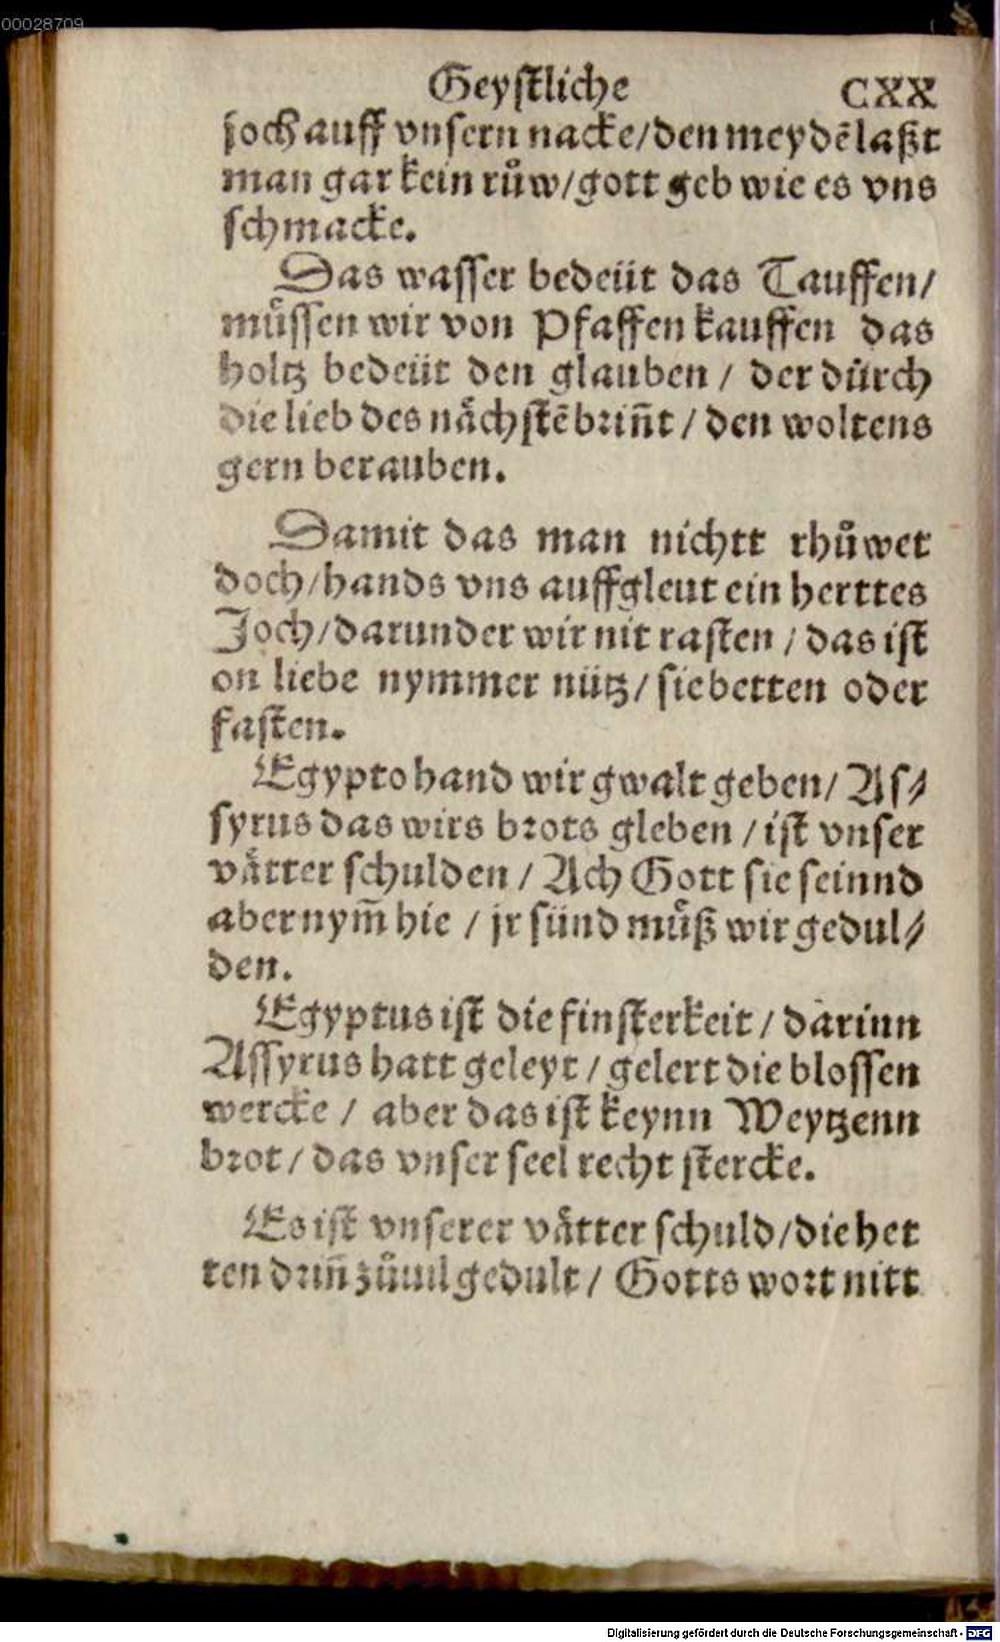 00028709
Geystliche CXX
joch auff vnsern nacke/den meydẽ laßt
man gar kein růw/gott geb wie es vns
schmacke.
Das wasser bedeüt das Tauffen/
müssen wir von Pfaffen kauffen das
holtz bedeüt den glauben / der dürch
die lieb des nächstẽ brin̄t / den woltens
gern berauben.
Damit das man nichtt rhůwet
doch/hands vns auffgleut ein herttes
Joch/darunder wir nit rasten / das ist
on liebe nymmer nütz/ sie betten oder
fasten.
Egypto hand wir gwalt geben/ As⸗
syrus das wirs brots gleben / ist vnser
vätter schulden / Ach Gott sie seinnd
aber nym̄ hie / jr sünd müß wir gedul⸗
den.
Egyptus ist die finsterkeit / darinn
Assyrus hatt geleyt / gelert die blossen
wercke / aber das ist keynn Weytzenn
brot/ das vnser seel recht stercke.
Es ist vnserer vätter schuld/die het
ten drin̄ zůuil gedult / Gotts wort nitt
Digitalisierung gefördert durch die Deutsche Forschungsgemeinschaft - DFG